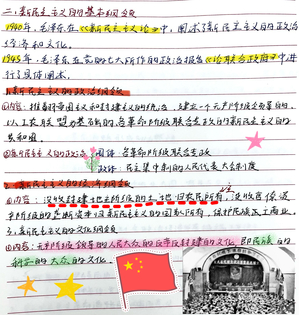 二、新民主主义的基本纲领
1940年,毛泽东在《新民主主义论》中,阐述了新民主主义的政治
经济和文化。
1945年,毛泽东在党的七大所作的政治报告《论联合政府》中进
行了具体阐述。
1.新民主主义的政治纲领
①内容:推翻帝国主义和封建主义的统治,建立一个无产阶级领导的、
以工农联盟为基础的、各革命阶级联合专政的新民主主义的
共和国。
②新民主主义的政治 国体:各革命阶级联合专政
政体:民主集中制的人民代表大会制度
2.新民主主义的经济纲领
①内容:没收封建地主阶级的土地归农民所有,没收官僚资
产阶级的垄断资本归新民主主义的国家所有,保护民族工商业。
3.新民主主义的文化纲领
①内容:无产阶级领导的人民大众的反帝反封建的文化,即民族的
科学的大众的文化